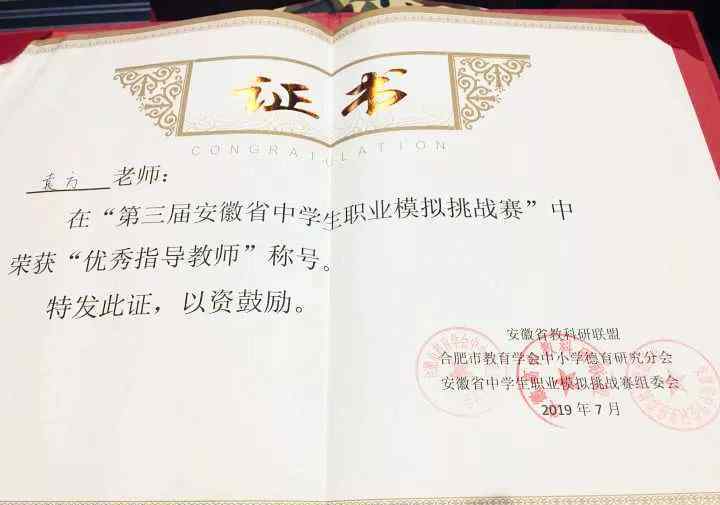 证书
CONGRATULATION
袁方 老师:
在“第三届安徽省中学生职业模拟挑战赛”中
荣获“优秀指导教师”称号。
特发此证，以资鼓励。
安徽省教科研联盟
合肥市教育学会中小学德育研究分会
安徽省中学生职业模拟挑战赛组委会
2019 年 7 月